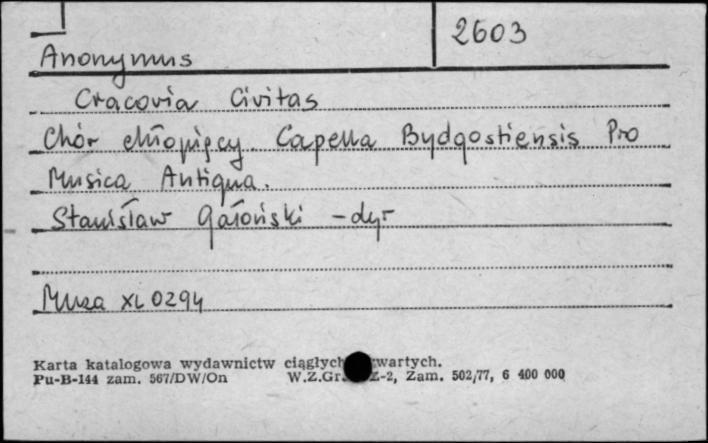 2603
Anonymus
Cracovia Civitas
Chór chłopięcy. Capella Bydgostiensis Pro
Musica Antiqua.
Stanisław Gałoński - dyr
Muza XL 0294
Karta katalogowa wydawnictw ciągłych wartych.
Pu-B-144 zam. 567/DW/On W.Z.Gr. Z-2, Zam. 502/77, 6 400 000